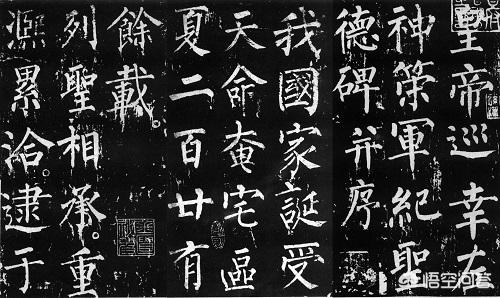 皇帝巡幸左
神策軍紀聖
德碑并序
我國家誕受
天命奄宅區
夏二百廿有
餘載
列聖相承重
熙累洽逮于
悟空问答